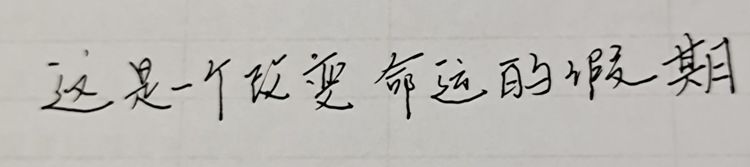 这是一个改变命运的假期